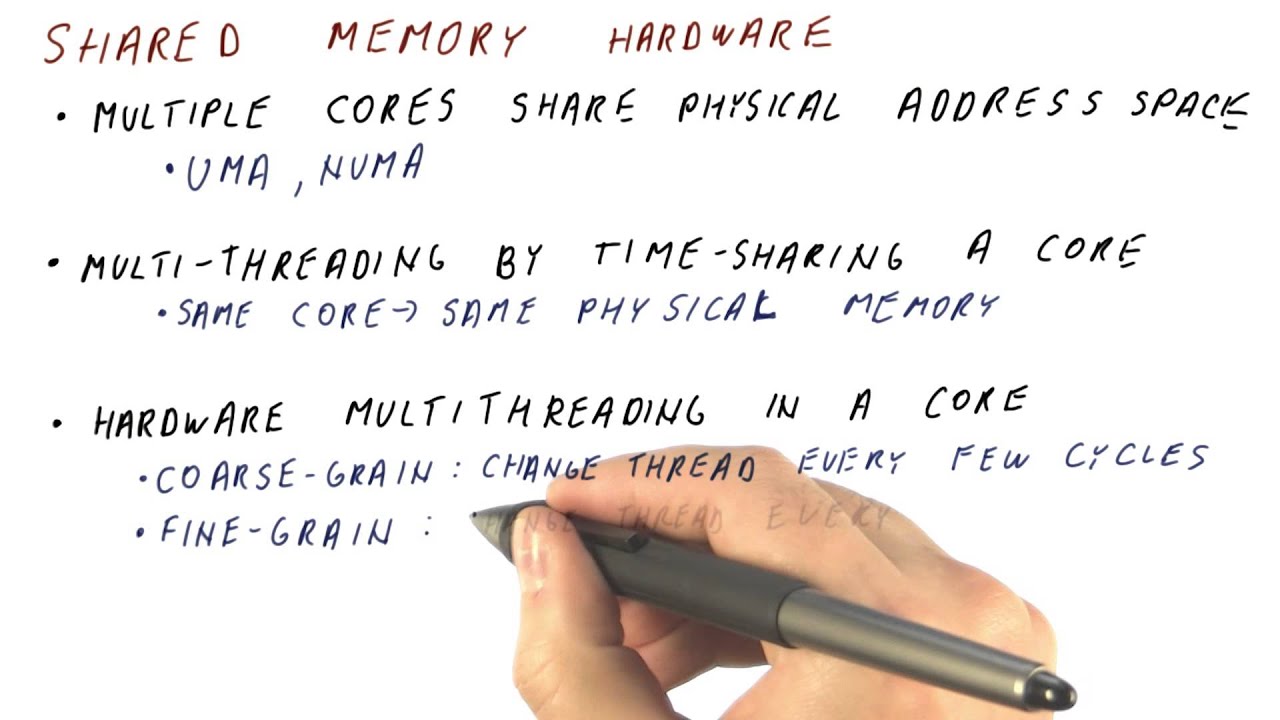 SHARED MEMORY HARDWARE
• MULTIPLE CORES SHARE PHYSICAL ADDRESS SPACE
• UMA, NUMA
• MULTI-THREADING BY TIME-SHARING A CORE
• SAME CORE → SAME PHYSICAL MEMORY
• HARDWARE MULTITHREADING IN A CORE
• COARSE-GRAIN : CHANGE THREAD EVERY FEW CYCLES
• FINE-GRAIN : HANGE THREAD EVERY